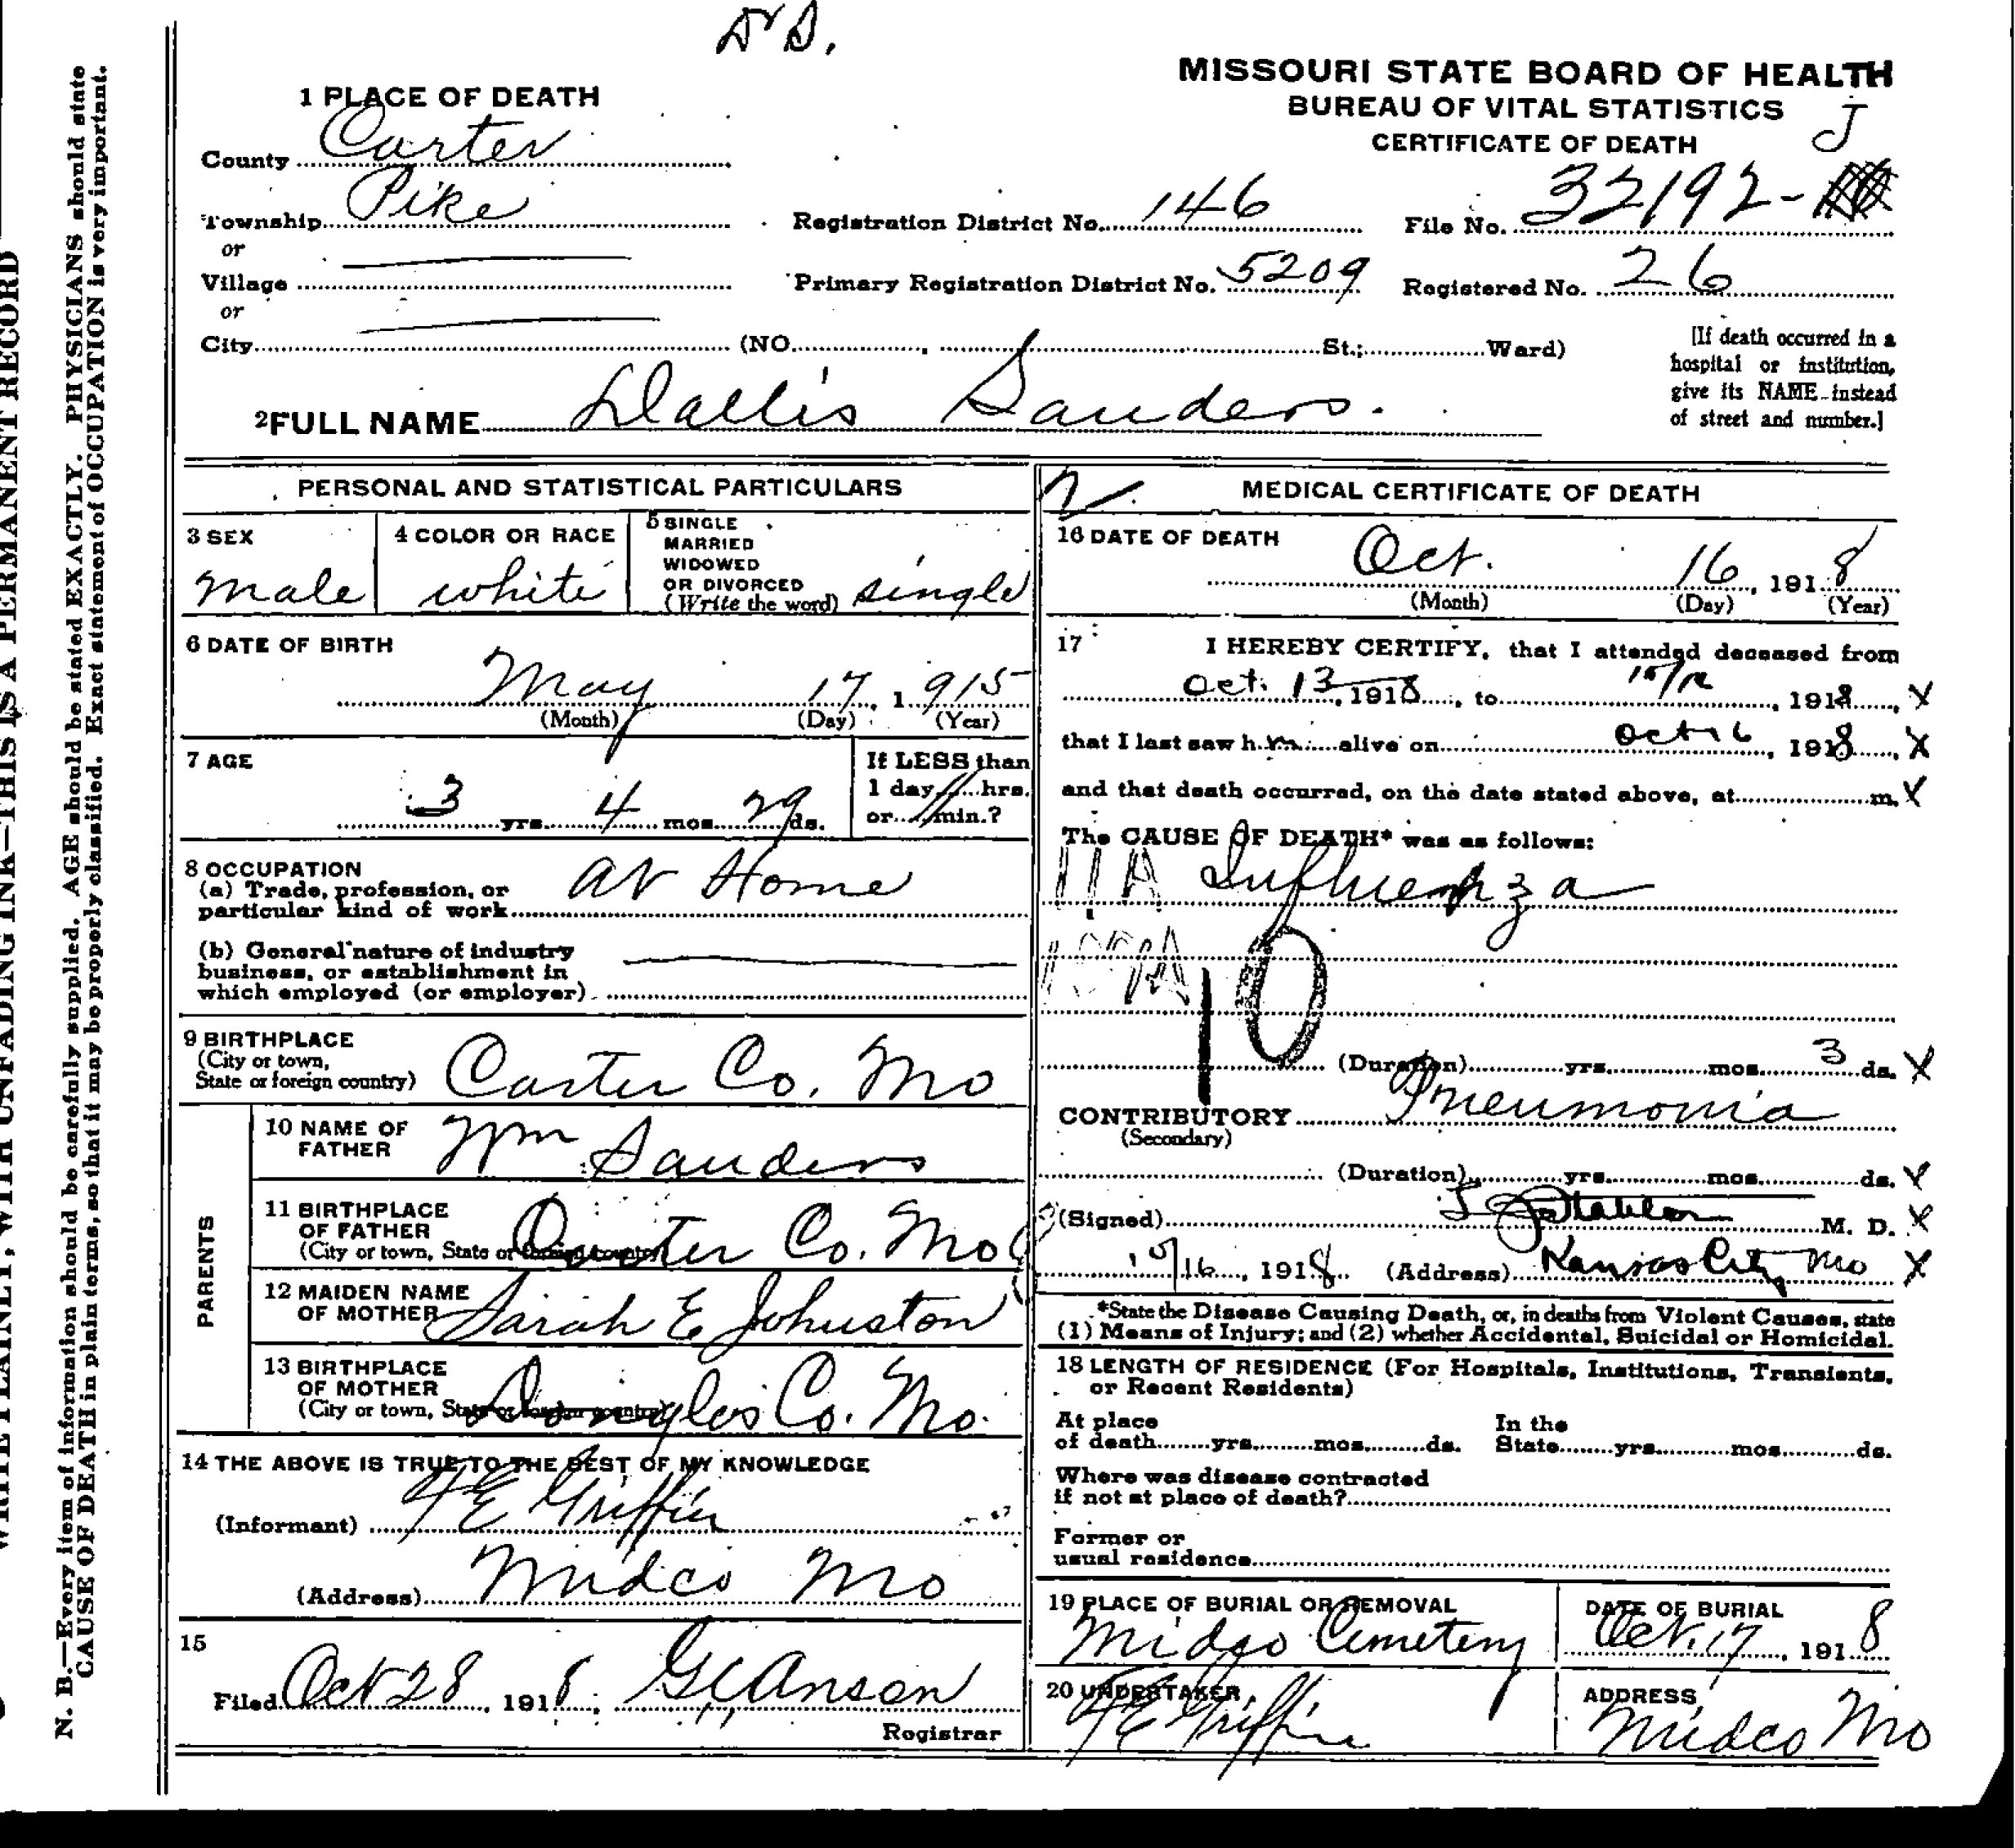 Dr D.
MISSOURI STATE BOARD OF HEALTH
BUREAU OF VITAL STATISTICS
CERTIFICATE OF DEATH
J
1 PLACE OF DEATH
County Carter
Township Pike
or
Village
or
City (NO. , St.; Ward)
Registration District No. 146
File No. 32192-
Primary Registration District No. 5209
Registered No. 26
[If death occurred in a
hospital or institution,
give its NAME instead
of street and number.]
2 FULL NAME Dallis Sanders.
PERSONAL AND STATISTICAL PARTICULARS
3 SEX
male
4 COLOR OR RACE
white
5 SINGLE
MARRIED
WIDOWED
OR DIVORCED
(Write the word) single
6 DATE OF BIRTH
May 17, 1 915
(Month) (Day) (Year)
7 AGE
3 yrs. 4 mos. 29 ds.
If LESS than
1 day, hrs.
or min.?
8 OCCUPATION
(a) Trade, profession, or
particular kind of work At Home
(b) General nature of industry
business, or establishment in
which employed (or employer)
9 BIRTHPLACE
(City or town,
State or foreign country) Carter Co. Mo
PARENTS
10 NAME OF
FATHER Wm Sanders
11 BIRTHPLACE
OF FATHER
(City or town, State or foreign country) Carter Co. Mo
12 MAIDEN NAME
OF MOTHER Sarah E Johnston
13 BIRTHPLACE
OF MOTHER
(City or town, State or foreign country) Douglas Co. Mo.
14 THE ABOVE IS TRUE TO THE BEST OF MY KNOWLEDGE
(Informant) F E Griffin
(Address) Midco Mo
15
Filed Oct 28, 1918, G C Anson
Registrar
MEDICAL CERTIFICATE OF DEATH
16 DATE OF DEATH
Oct. 16, 1918
(Month) (Day) (Year)
17 I HEREBY CERTIFY, that I attended deceased from
Oct. 13, 1918, to , 1918, X
that I last saw h im alive on Oct 16, 1918, X
and that death occurred, on the date stated above, at m. X
The CAUSE OF DEATH* was as follows:
11A Influenza
10
(Duration) yrs. mos. 3 ds. X
CONTRIBUTORY Pneumonia
(Secondary)
(Duration) yrs. mos. ds. X
(Signed) M. D. X
10/16, 1918 (Address) Kansas City Mo X
*State the Disease Causing Death, or, in deaths from Violent Causes, state
(1) Means of Injury; and (2) whether Accidental, Suicidal or Homicidal.
18 LENGTH OF RESIDENCE (For Hospitals, Institutions, Transients,
or Recent Residents)
At place
of death yrs. mos. ds.
In the
State yrs. mos. ds.
Where was disease contracted
if not at place of death?
Former or
usual residence
19 PLACE OF BURIAL OR REMOVAL
Midco Cemetery
DATE OF BURIAL
Oct. 17, 1918
20 UNDERTAKER
F E Griffin
ADDRESS
Midco Mo
WRITE PLAINLY, WITH UNFADING INK—THIS IS A PERMANENT RECORD
N. B.—Every item of information should be carefully supplied. AGE should be stated EXACTLY. PHYSICIANS should state
CAUSE OF DEATH in plain terms, so that it may be properly classified. Exact statement of OCCUPATION is very important.